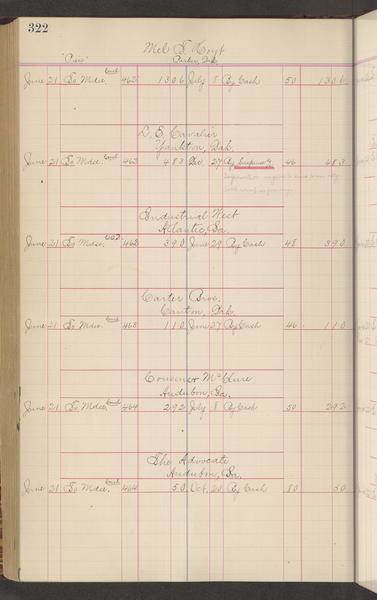 322
Mel S. Hoyt
"Pierre" Parker, Dak.
June 21 To Mdse. 462 1306 July 8 By Cash 50 1306
D. E. Cavalier
Yankton, Dak.
June 21 To Mdse. 462 483 Dec. By 46 483
Industrial West
Atlantic, Ia.
June 21 To Mdse. 462 390 June 29 By Cash 48 390
Carter Bros.
Canton, Dak.
June 21 To Mdse. 463 110 June 27 By Cash 46 110
McClure
Audubon, Ia.
June 21 To Mdse. 464 292 July 8 By Cash 50 292
The Advocate
Audubon, Ia.
June 21 To Mdse. 464 50 Oct. 20 By Cash 80 50